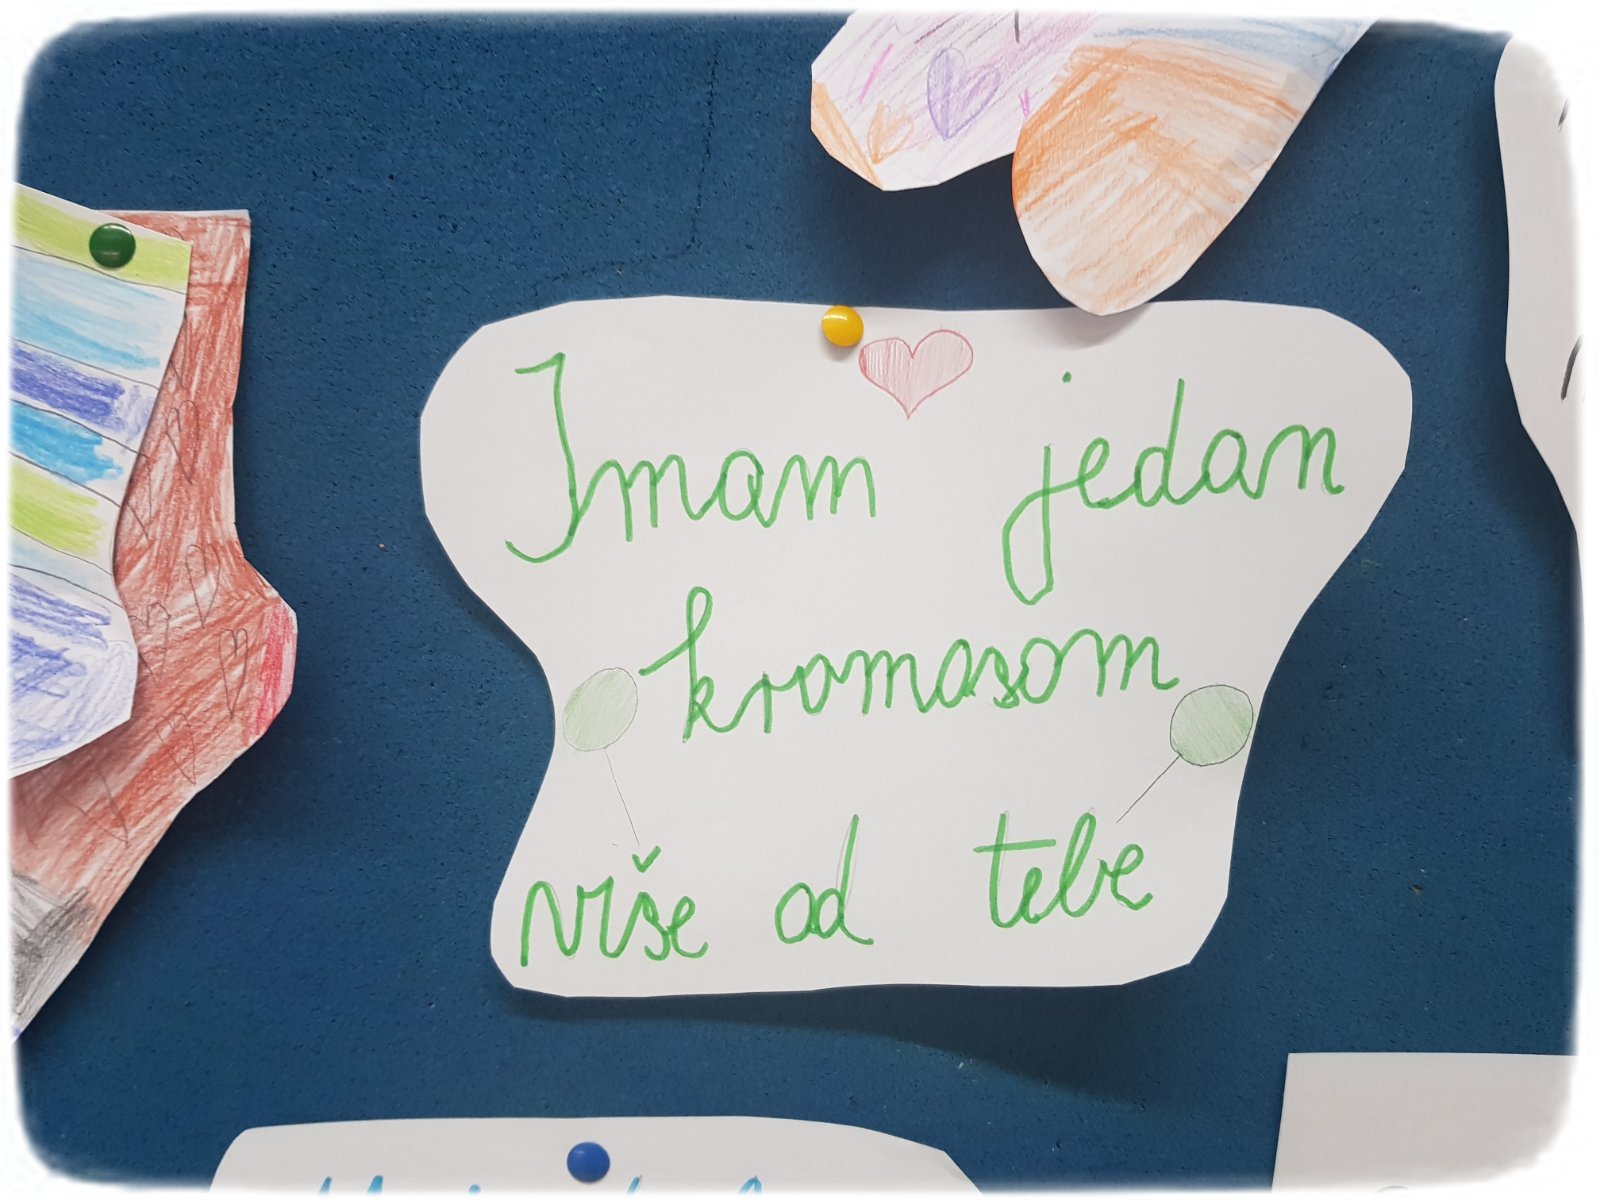 Imam jedan
kromosom
više od tebe